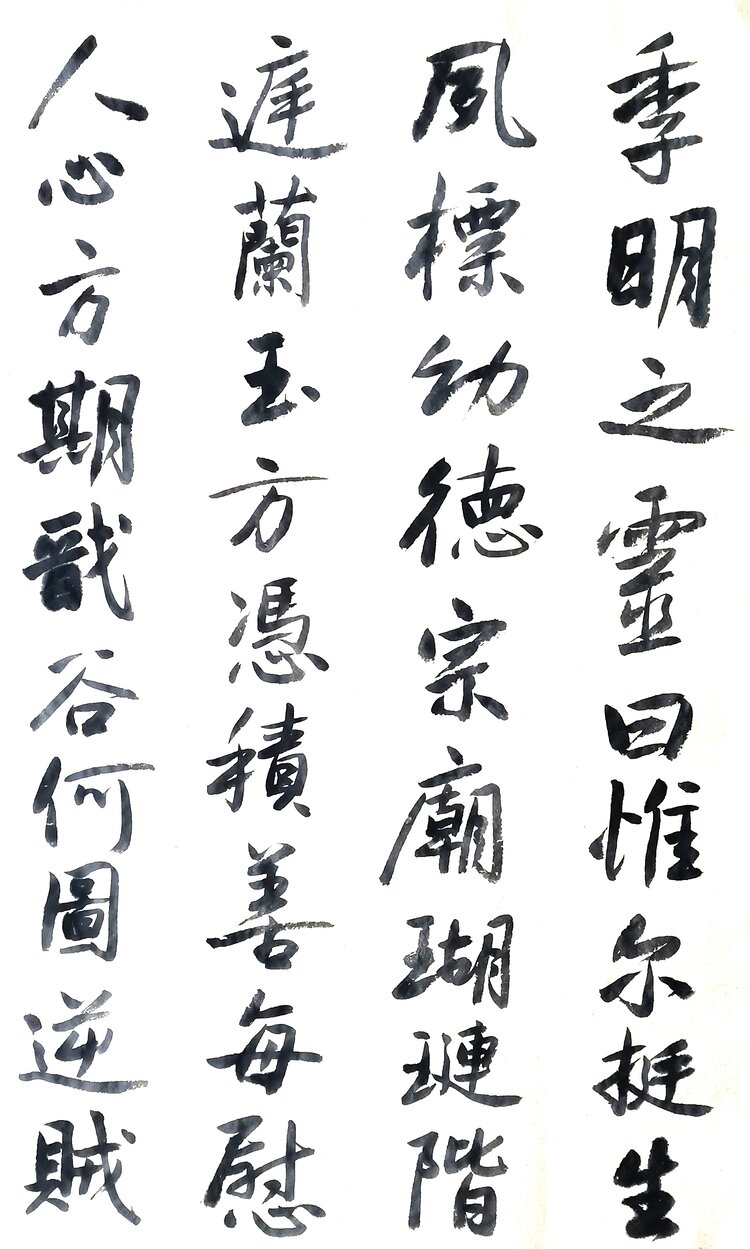 季明之靈曰惟尔挺生
夙標幼德宗廟瑚璉階
庭蘭玉方憑積善每慰
人心方期戩谷何圖逆賊